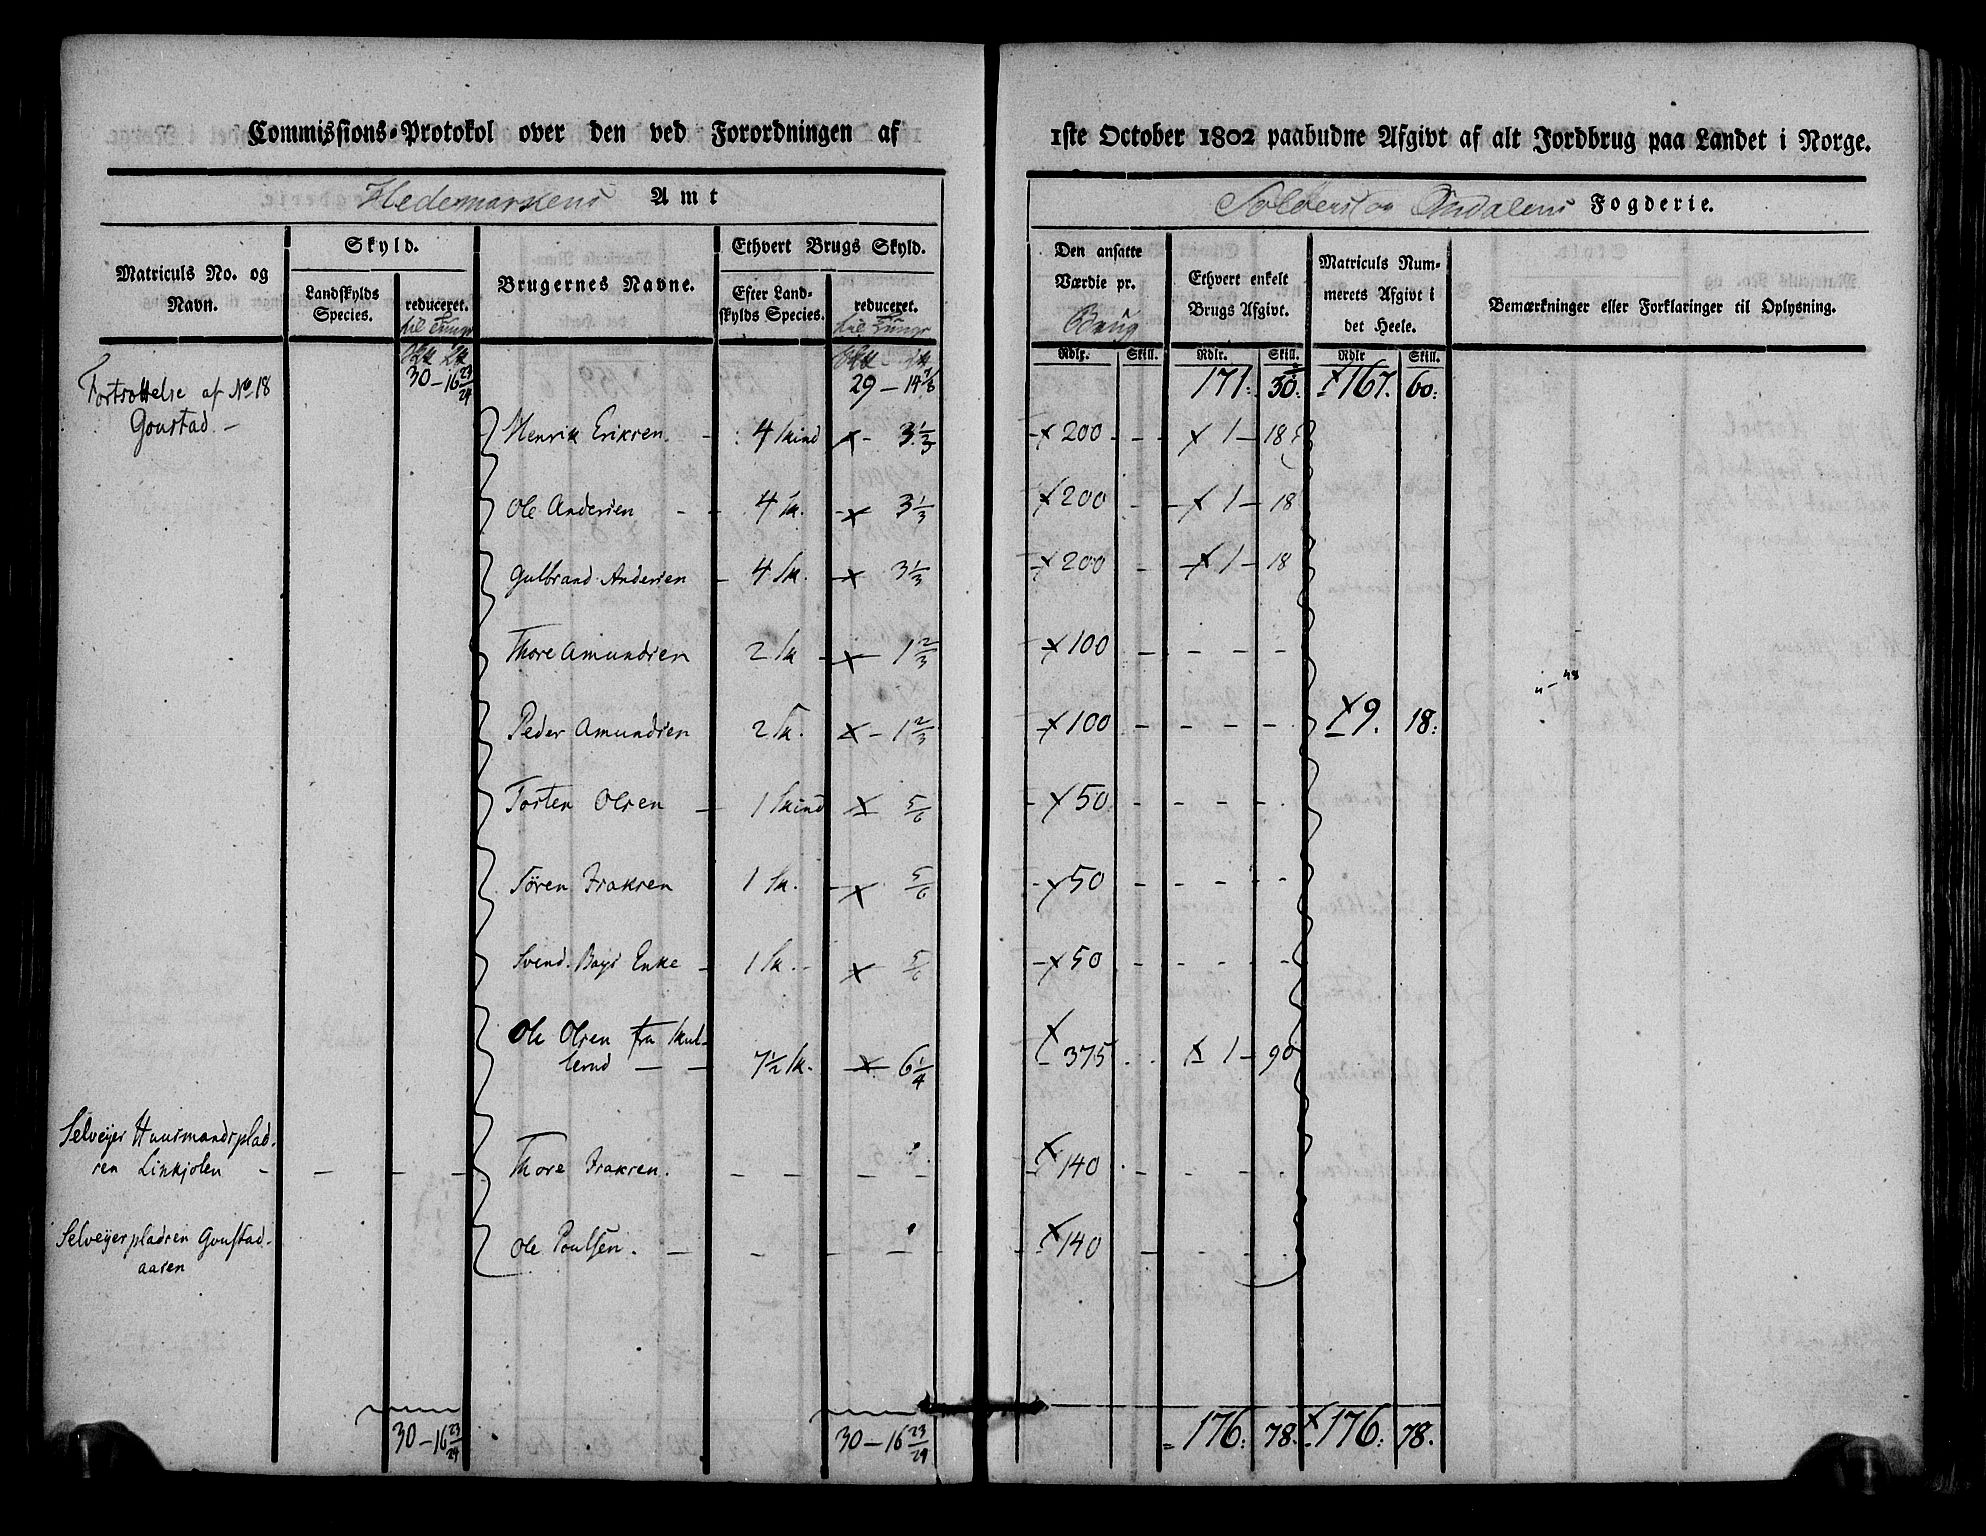 Commissions-Protokol over den ved Forordningen af 1ste October 1802 paabudne Afgivt af alt Jordbrug paa Landet i Norge.
Hedemarkens Amt
Fogderie.
Matriculs No. og Navn.
Skyld.
Landskylds Species.
reduceret.
til Tunge
Brugernes Navne.
Ethvert Brugs Skyld.
Efter Landskylds Species.
reduceret.
til Tunge
Den ansatte Værdie pr.
Brug
Ethvert enkelt Brugs Afgivt.
Matriculs Nummerets Afgivt i det Heele.
Bemærkninger eller Forklaringer til Oplysning.
Rdlr. Skill. Rdlr. Skill. Rdlr Skill.
Fortsættelse af No 18 30-16 23/24 29-14 7/8 171: 30: 167. 60:
Gonstad.-
Henrik Eriksen. - 4 Skind x- 3 1/3 x 200 - - x 1 - 18
Ole Andersen - - 4 Sk. - x 3 1/3 x 200 - x 1 - 18
Gulbrand Andersen - 4 Sk. - x 3 1/3 x 200 - x 1 - 18
Thore Amundsen 2 Sk - x - 1 2/3 x 100 - - - - -
Peder Amundsen 2 Sk. x - 1 2/3 x 100 - - - - - x 9. 18:
Torsten Olsen - 1 Skind x 5/6 - x 50 - - - -
Sören Isaksen 1 Sk. - x 5/6 - x 50 - - - - -
Svend Enke - 1 Sk. - x 5/6 - x 50 - - - - -
Ole Olsen fra Skul-
lerud - - 7 1/2 Sk. - x - 6 1/4 x 375 . . x 1 - 90
Selveyer Huusmandsplad-
sen Linkjolen - - - - Thore Isaksen. - - - - - x 140 - - - -
Selveyerpladsen Gonstad-
aasen Ole Poulsen. - - - - - x 140 - - - -
30-16 23/24 30-16 23/24 176: 78. x 176: 78.